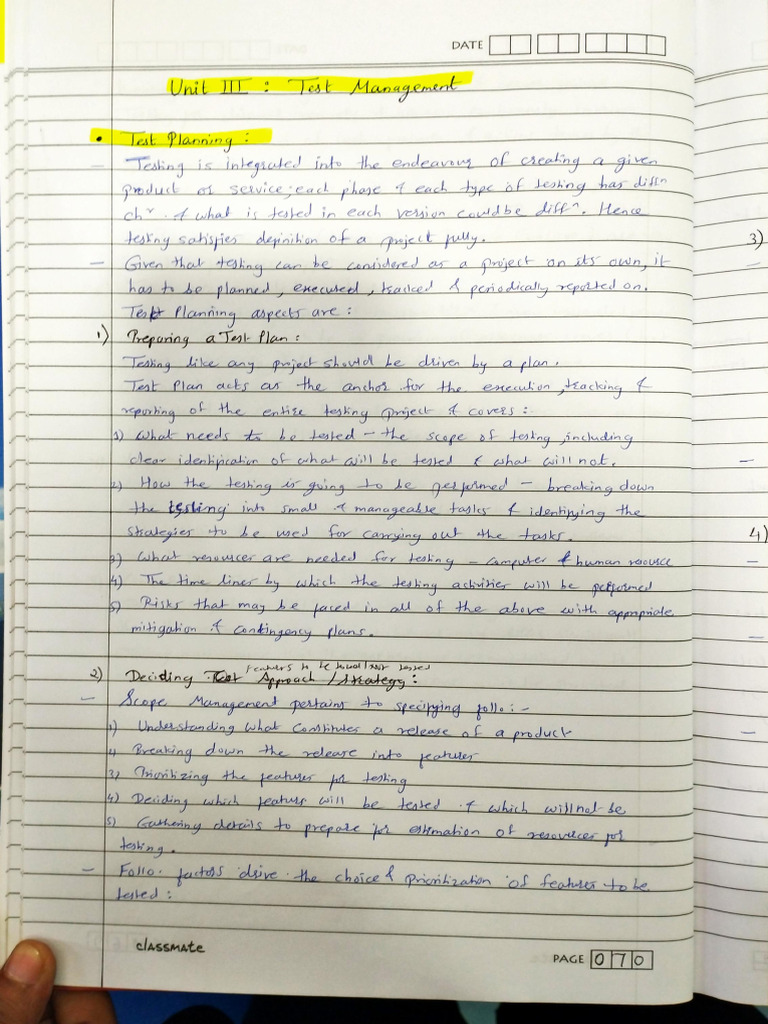 DATE
Unit III : Test Management
• Test Planning :
– Testing is integrated into the endeavour of creating a given
product or service; each phase & each type of testing has diffn
chr. & what is tested in each version could be diffn. Hence
testing satisfies definition of a project fully.
– Given that testing can be considered as a project on its own, it
has to be planned, executed, tracked & periodically reported on.
Test Planning aspects are :
1) Preparing a Test Plan :
Testing like any project should be driven by a plan.
Test Plan acts as the anchor for the execution, tracking &
reporting of the entire testing project & covers :
1) What needs to be tested – the scope of testing including
clear identification of what will be tested & what will not.
2) How the testing is going to be performed – breaking down
the testing into small & manageable tasks & identifying the
strategies to be used for carrying out the tasks.
3) What resources are needed for testing – computer & human resource
4) The time lines by which the testing activities will be performed
5) Risks that may be faced in all of the above with appropriate
mitigation & contingency plans.
features to be tested/not tested
2) Deciding Test Approach / Strategy :
– Scope Management pertains to specifying follo :-
1) Understanding what constitutes a release of a product
2) Breaking down the release into features
3) Prioritizing the features for testing
4) Deciding which features will be tested & which will not be
5) Gathering details to prepare for estimation of resources for
testing.
– Follo. factors drive the choice & prioritization of features to be
tested :
classmate
PAGE 070
3)
4)